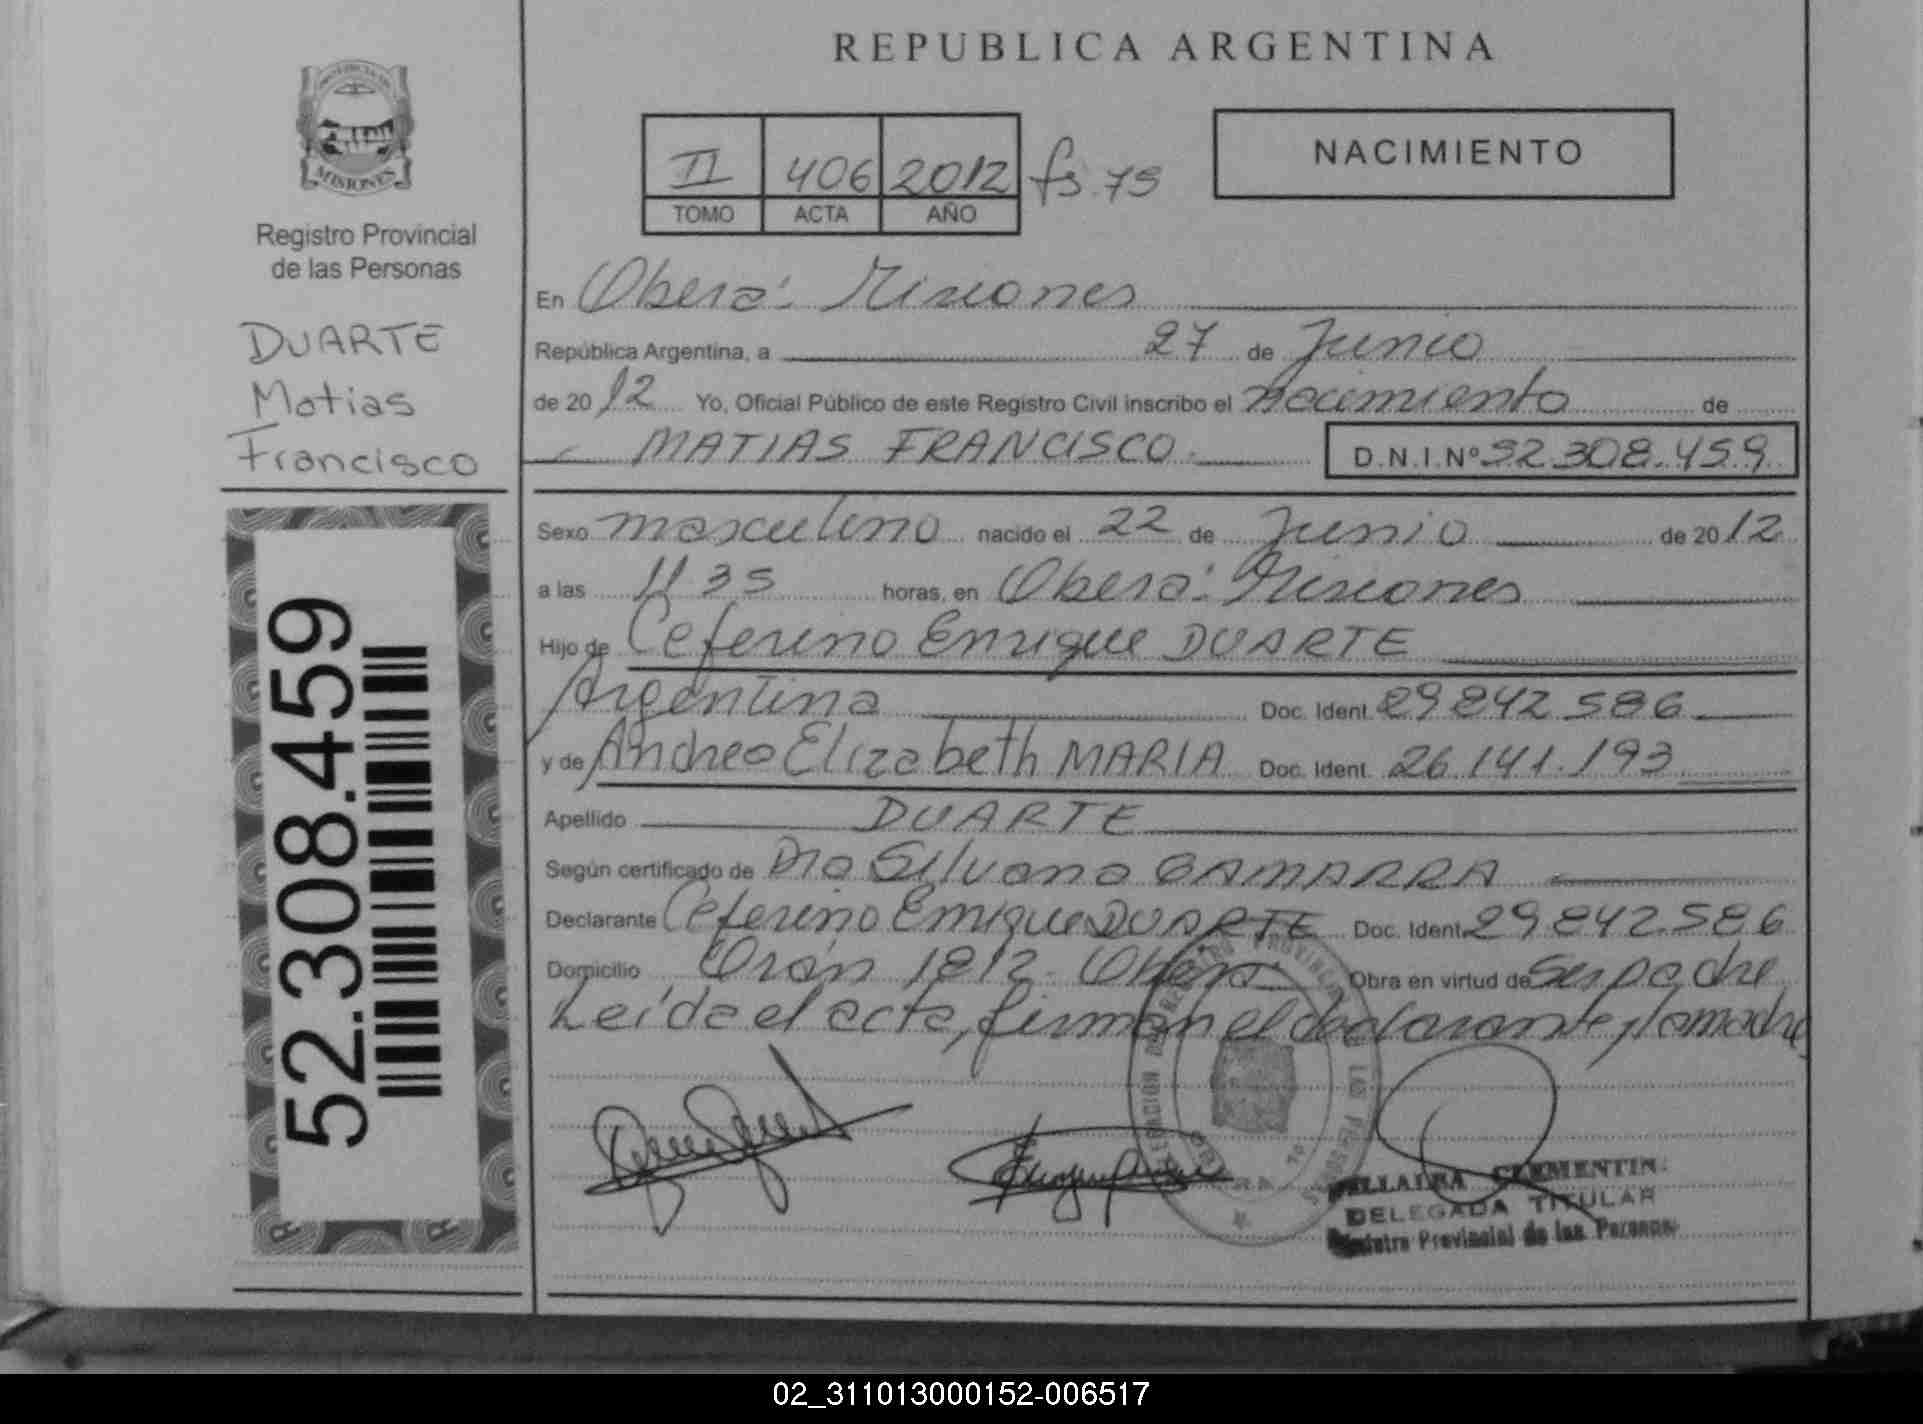 REPUBLICA ARGENTINA
PROVINCIA DE
MISIONES
Registro Provincial
de las Personas
DUARTE
Matias
Francisco
52.308.459
II 406 2012 fs. 75
TOMO ACTA AÑO
NACIMIENTO
En Oberá: Misiones
República Argentina, a 27 de Junio
de 2012 Yo, Oficial Público de este Registro Civil inscribo el nacimiento de
MATIAS FRANCISCO. D.N.I.Nº 52.308.459
Sexo masculino nacido el 22 de Junio de 2012
a las 11 35 horas, en Oberá: Misiones
Hijo de Ceferino Enrique DUARTE
Argentina Doc. Ident. 29.842.586
y de Andrea Elizabeth MARIA Doc. Ident. 26.141.193
Apellido DUARTE
Según certificado de Dra Silvana GAMARRA
Declarante Ceferino Enrique DUARTE Doc. Ident. 29.842.586
Domicilio Orán 1812. Oberá Obra en virtud de ser padre
Leída el acta, firman el declarante y la madre
VILLALBA CLEMENTINA
DELEGADA TITULAR
Registro Provincial de las Personas
02_311013000152-006517